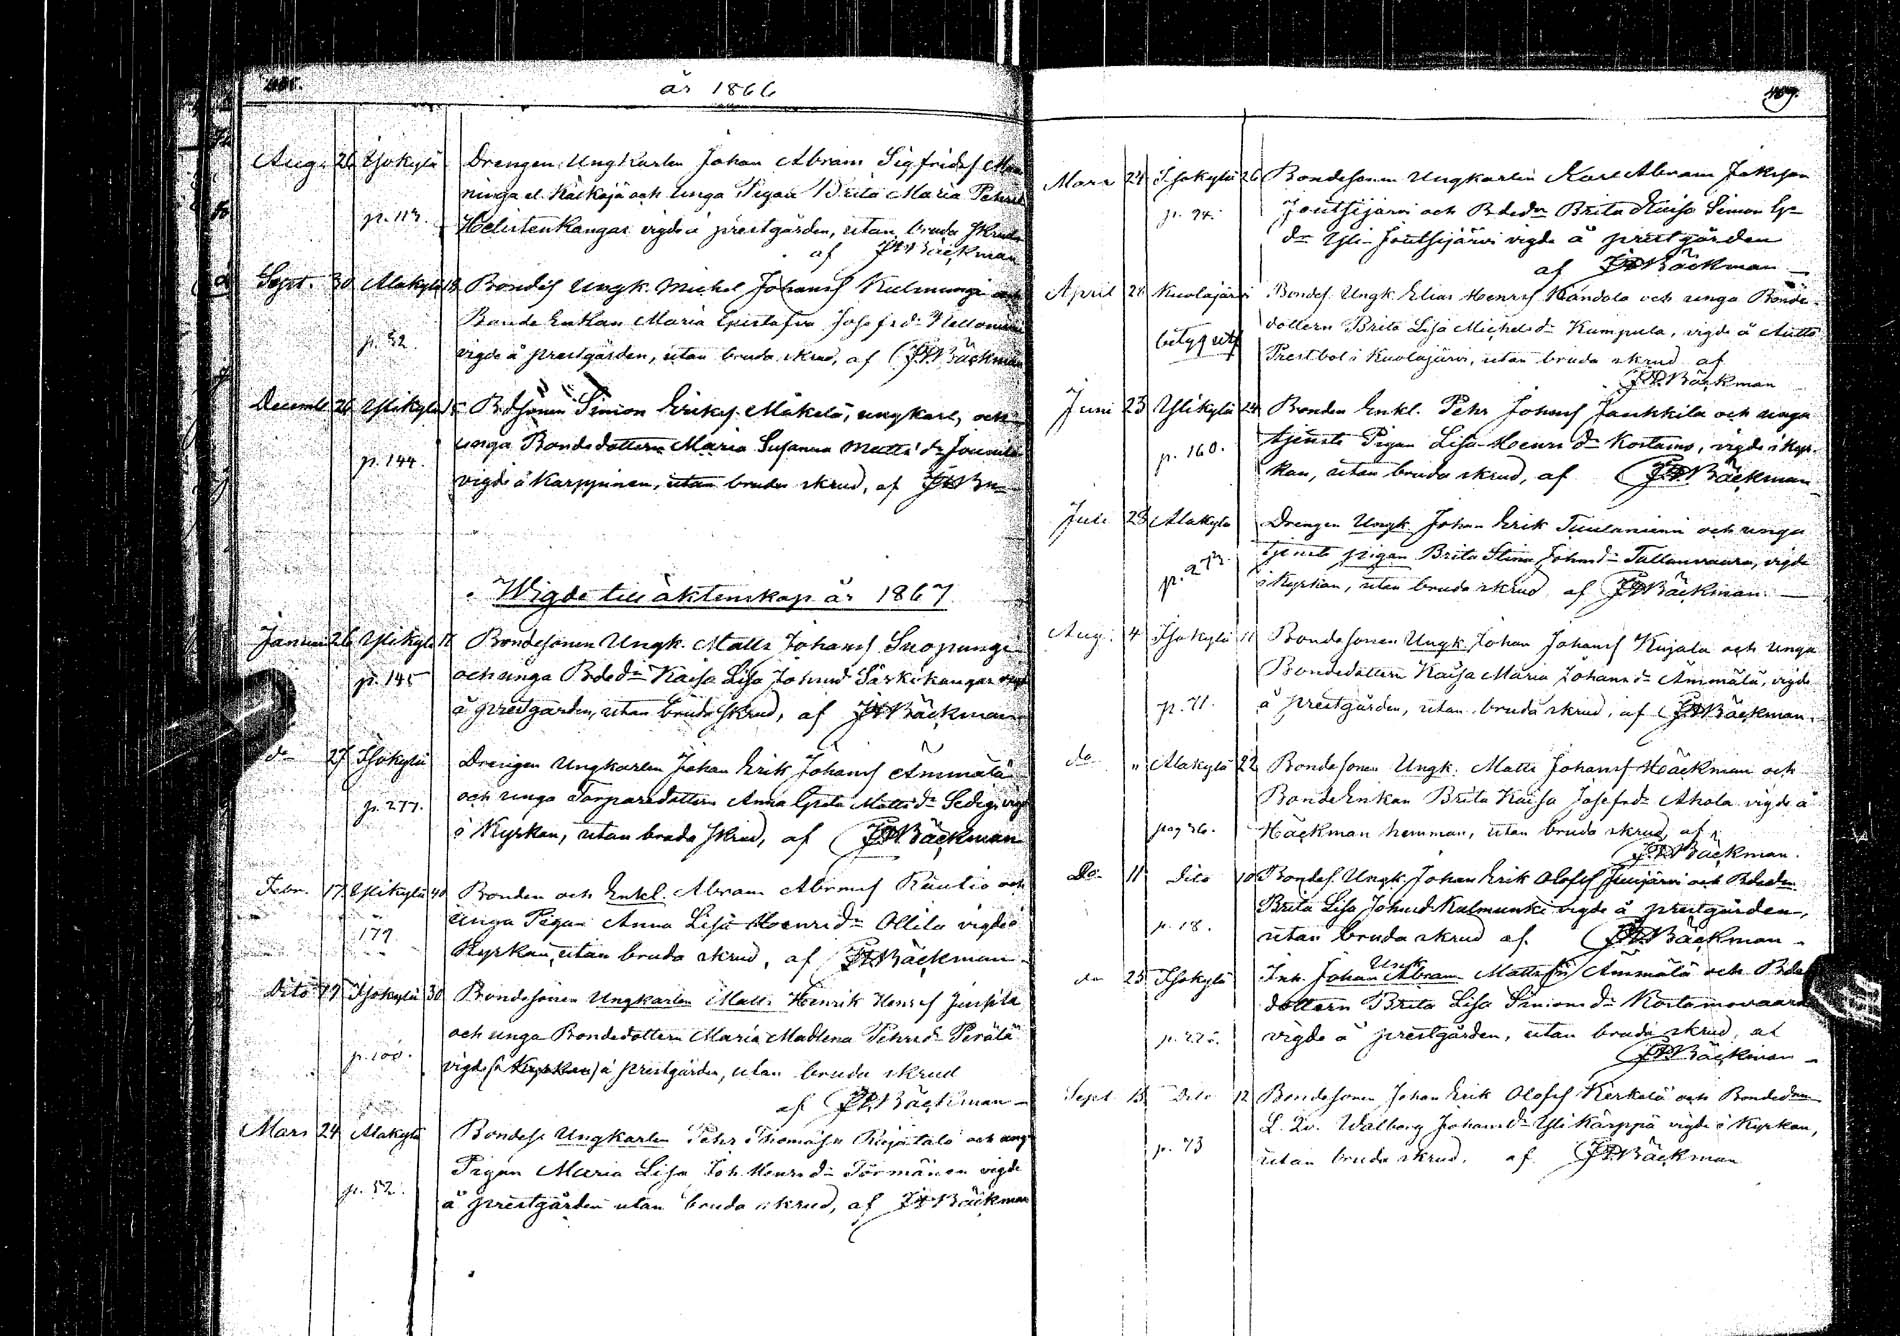 år 1866
Aug. 26 Isokylä Drengen Ungkarlen Johan Abram Sigfridsf
ninga el. Käckäjä och unga Pigan Brita Maria Pehrsd
p. 113. Helistenkangas vigde å prestgården, utan bruda skrud
af JWBäckman
Sept. 30 Alakylä 18 Bondes Ungk. Michel Johansf Kulmungi och
Bonde Enkan Maria Gustafva Josefsd
p. 52. vigde å prestgården, utan bruda skrud, af JWBäckman
Decemb 26 Ylikylä 15 Bdsonen Simon Eriksf. Mäkelä, ungkarl, och
unga Bondedottern Maria Susanna Matts dr
p. 144. vigde å Karppinen, utan bruda skrud, af
Wigde till äktenskap år 1867
Januari 26 Ylikylä 18 Bondesonen Ungk. Matts Johansf Suopungi
p. 145 och unga Bdedr Kaisa Lisa Johnsd Särkikangas
å prestgården, utan bruda skrud, af JWBäckman
do 27 Isokylä Drengen Ungkarlen Johan Erik Johansf Ämmälä
p. 277. och unga Torparedottern Anna Greta Matts dr
i Kyrkan, utan bruda skrud, af JWBäckman
Febr. 17 Ylikylä 40 Bonden och Enkl. Abram Abramsf Rautio och
179 unga Pigan Anna Lisa Henrsdr Ollila vigde i
Kyrkan, utan bruda skrud, af JWBäckman
Dito 19 Isokylä 30 Bondesonen Ungkarlen Matts Henrik Henrsf
och unga Bondedottern Maria Madlena Pehrsdr Perälä
p. 100. vigde (i Kyrkan) å prestgården, utan bruda skrud
af JWBäckman
Mars 24 Alakylä Bondes. Ungkarlen Pehr Thomasson Rajatalo och
Pigan Maria Lisa Joh. Henrsdr Törmänen vigde
p. 52. å prestgården utan bruda skrud, af JWBäckman
Mars 24 Isokylä 26 Bondesonen Ungkarlen Karl Abram Jakssn
p. 94. Joutsijärvi och Bdedr Brita Kaisa Simon
dr Yli-Joutsijärvi vigde å prestgården
af JWBäckman
April 21 Kuolajärvi Bondes. Ungk. Elias Henrsf Kandola och unga Bonde-
betyg utg dottern Brita Lisa Michelsdr Kumpula, vigde å
Prestbol i Kuolajärvi, utan bruda skrud af
JWBäckman
Juni 23 Ylikylä 24 Bonden Enkl. Pehr Johansf Jaukkila och unga
p. 160. tjenste Pigan Lisa Henrs dr Kostamo, vigde i Kyr-
kan, utan bruda skrud, af JWBäckman
Juli 28 Alakylä Drengen Ungk. Johan Erik Tuulaniemi och unga
p. 273 tjenste pigan Brita Stina Johnsdr Tallavaara, vigde
i Kyrkan, utan bruda skrud af JWBäckman.
Aug. 4 Isokylä 11 Bondesonen Ungk. Johan Johansf Kujala och unga
Bondedottern Kaisa Maria Johansdr Ämmälä, vigde
p. 71. å prestgården, utan bruda skrud, af JWBäckman.
do " Alakylä 22 Bondesonen Ungk. Matts Johansf Häckman och
BondeEnkan Brita Kaisa Josefsdr Ahola vigde å
pag 36. Häckman hemman, utan bruda skrud, af
JWBäckman.
Do. 11 Dito 10 Bondes. Ungk. Johan Erik Olofsf Junjärvi och Bdedn
Brita Lisa Johnsd Kulmunki vigde å prestgården,
p. 18. utan bruda skrud af. JWBäckman
do 25 Isokylä Inh. Johan Ungk Abram Mattsson Ämmälä och Bde
dottern Brita Lisa Simonsdr Kostamovaara
p. 225. vigde å prestgården, utan bruda skrud, af
JWBäckman
Sept. 15 Dito 12 Bondesonen Johan Erik Olofsf Kerkelä och Bondedn
L. Qv. Walborg Johansdr Yli Kärppä vigde i Kyrkan,
p. 73 utan bruda skrud. af JWBäckman